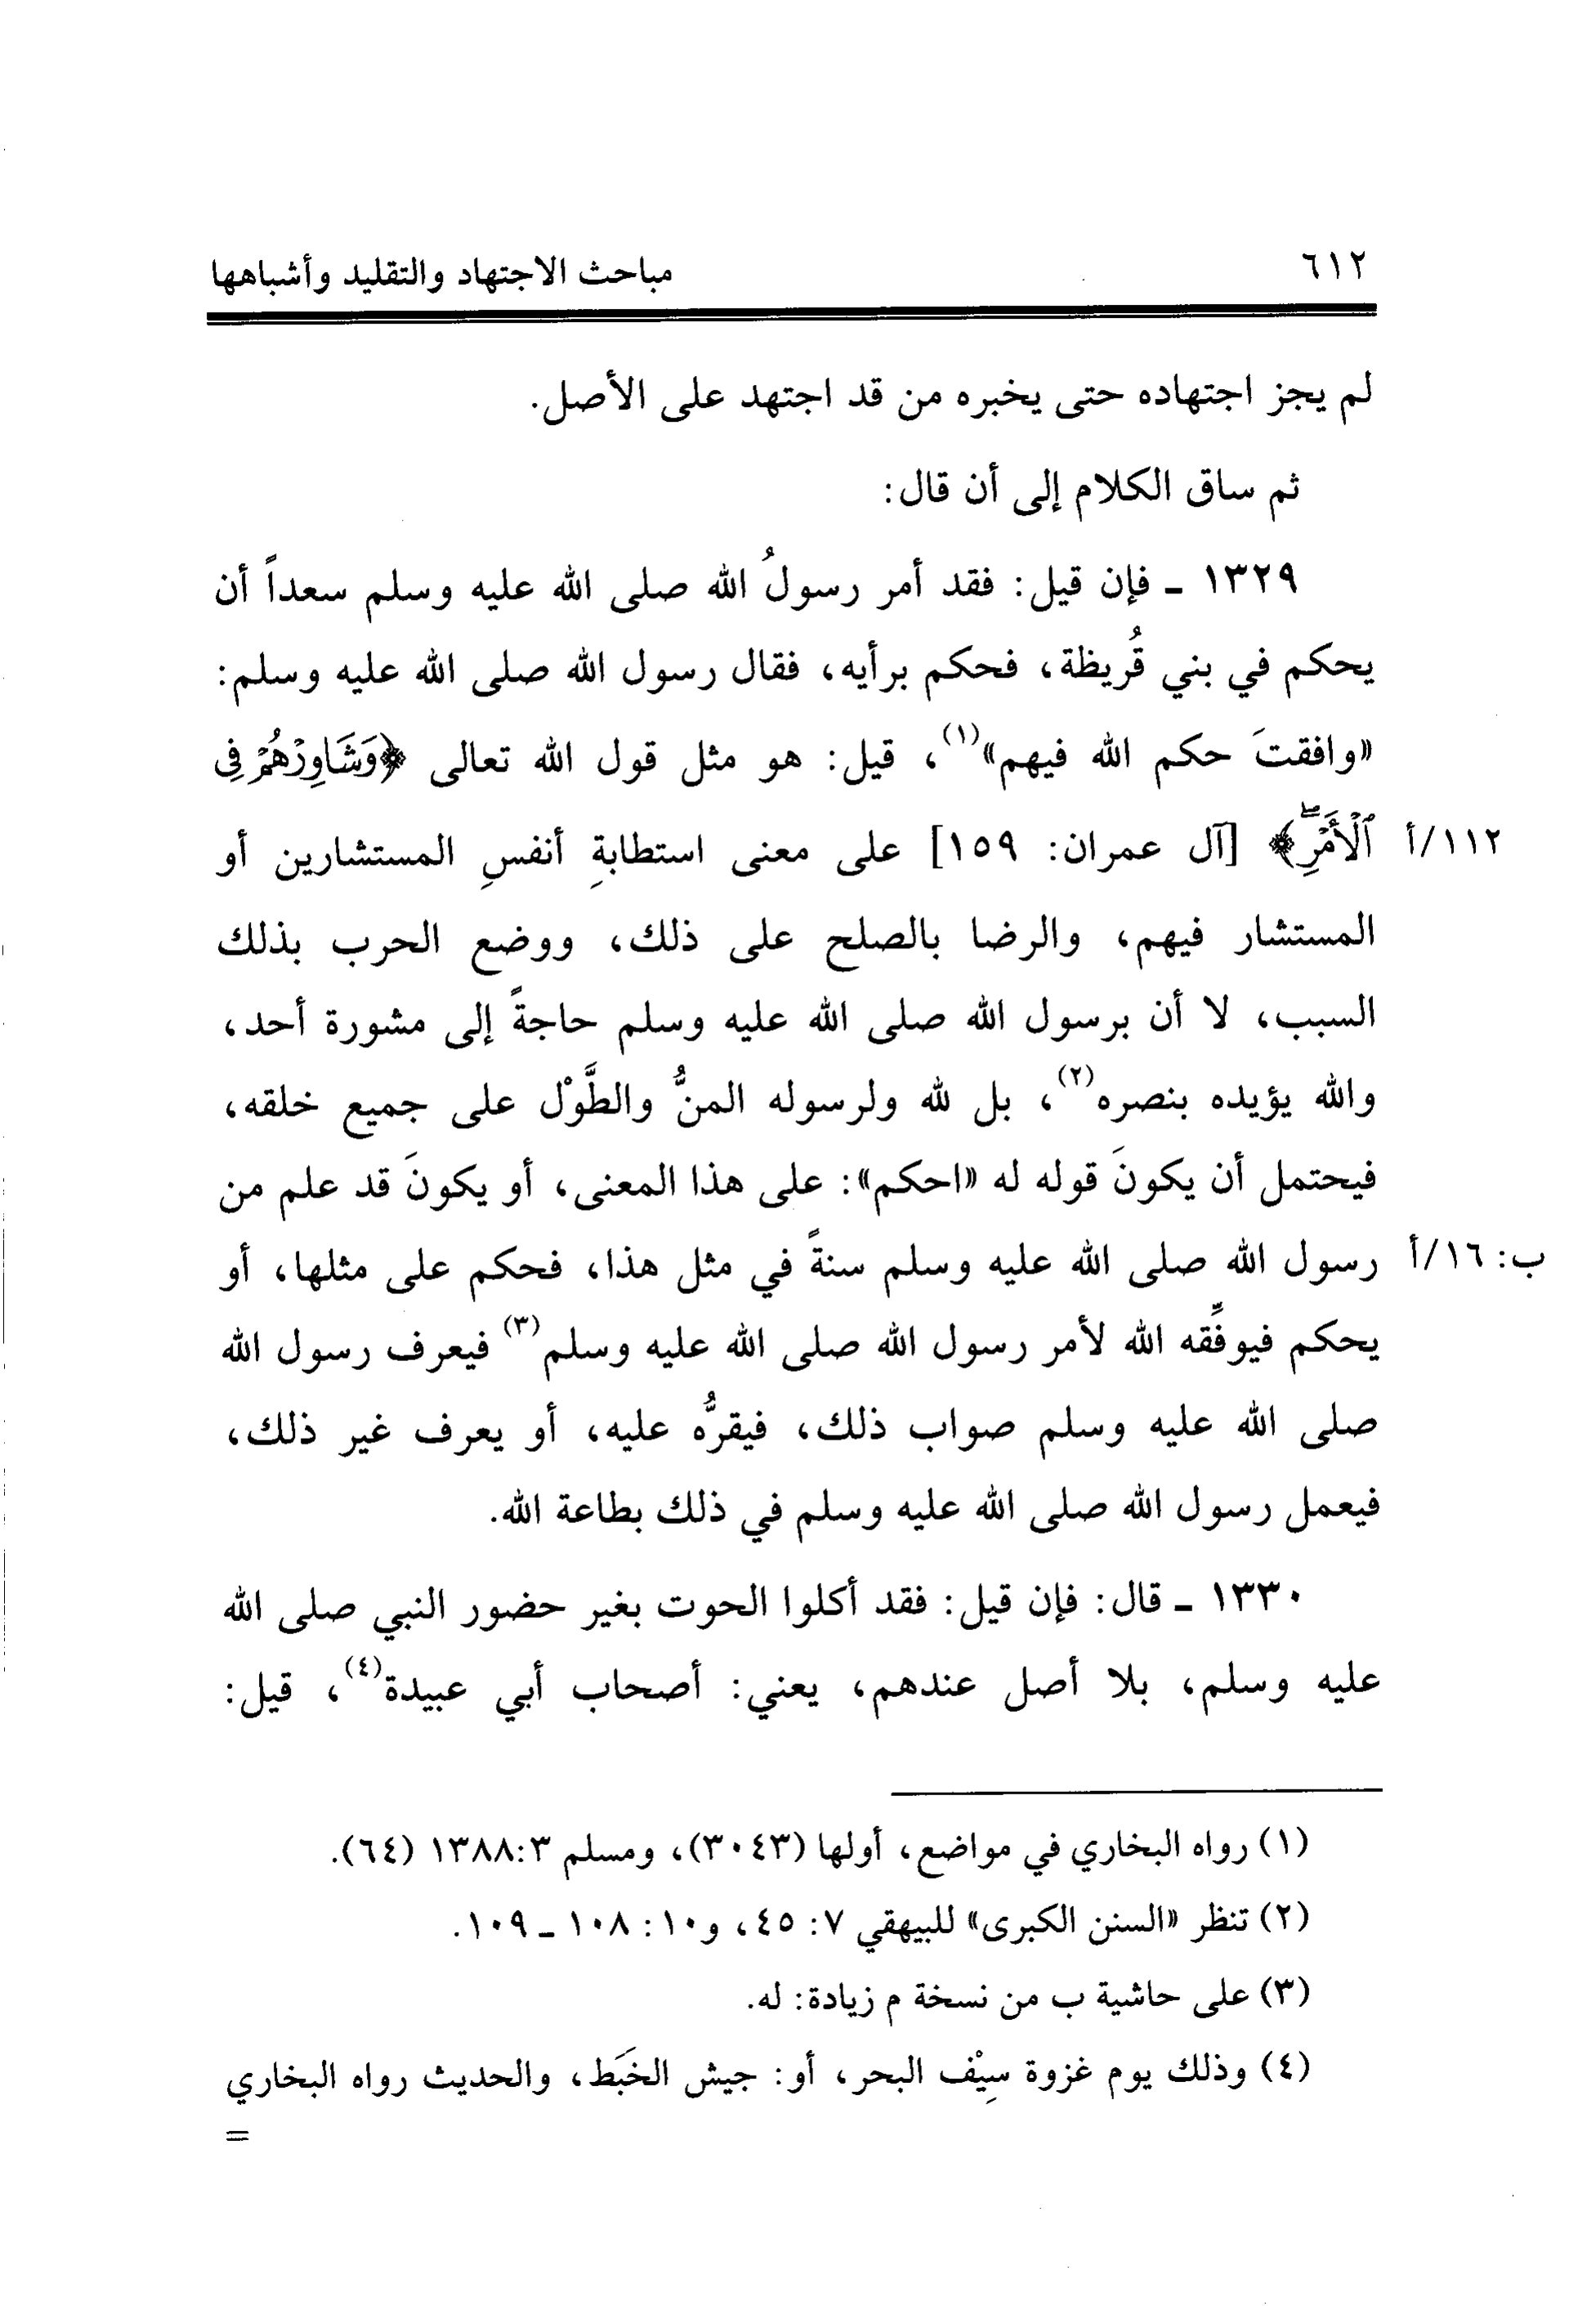 ٦١٢ مباحث الاجتهاد والتقليد وأشباهها
لم يجز اجتهاده حتى يخبره من قد اجتهد على الأصل.
ثم ساق الكلام إلى أن قال:
١٣٢٩ ـ فإن قيل: فقد أمر رسولُ الله صلى الله عليه وسلم سعداً أن
يحكم في بني قُريظة، فحكم برأيه، فقال رسول الله صلى الله عليه وسلم:
«وافقتَ حكم الله فيهم»(١)، قيل: هو مثل قول الله تعالى ﴿وَشَاوِرْهُمْ فِي
ٱلْأَمْرِۖ﴾ [آل عمران: ١٥٩] على معنى استطابةِ أنفسِ المستشارين أو
١١٢/أ
المستشار فيهم، والرضا بالصلح على ذلك، ووضع الحرب بذلك
السبب، لا أن برسول الله صلى الله عليه وسلم حاجةً إلى مشورة أحد،
والله يؤيده بنصره(٢)، بل لله ولرسوله المنُّ والطَّوْل على جميع خلقه،
فيحتمل أن يكونَ قوله له «احكم»: على هذا المعنى، أو يكونَ قد علم من
رسول الله صلى الله عليه وسلم سنةً في مثل هذا، فحكم على مثلها، أو
ب: ١٦/أ
يحكم فيوفِّقه الله لأمر رسول الله صلى الله عليه وسلم(٣) فيعرف رسول الله
صلى الله عليه وسلم صواب ذلك، فيقرُّه عليه، أو يعرف غير ذلك،
فيعمل رسول الله صلى الله عليه وسلم في ذلك بطاعة الله.
١٣٣٠ ـ قال: فإن قيل: فقد أكلوا الحوت بغير حضور النبي صلى الله
عليه وسلم، بلا أصل عندهم، يعني: أصحاب أبي عبيدة(٤)، قيل:
(١) رواه البخاري في مواضع، أولها (٣٠٤٣)، ومسلم ٣:١٣٨٨ (٦٤).
(٢) تنظر «السنن الكبرى» للبيهقي ٧: ٤٥، و١٠: ١٠٨ ـ ١٠٩.
(٣) على حاشية ب من نسخة م زيادة: له.
(٤) وذلك يوم غزوة سِيْف البحر، أو: جيش الخَبَط، والحديث رواه البخاري
=